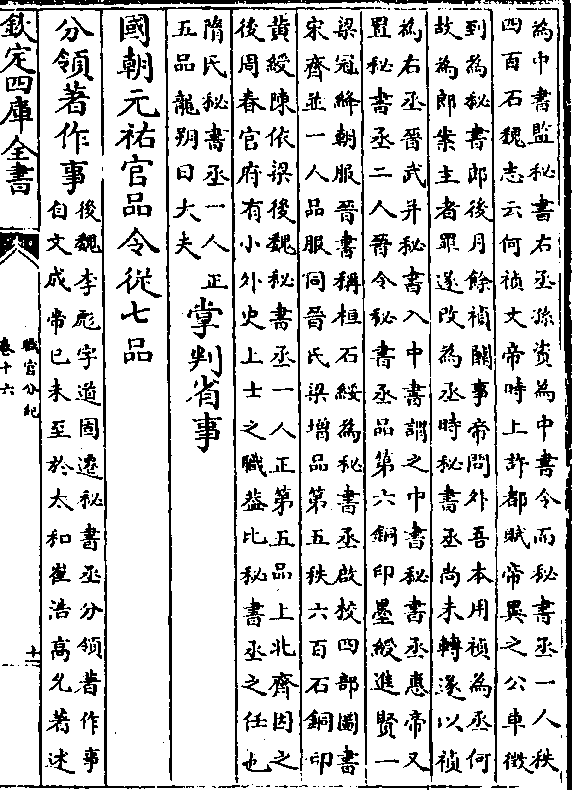 為中書監秘書右丞孫資為中書令而秘書丞一人秩
四百石魏志云何禎文帝時上許都賦帝異之公車徵
到為秘書郎後月餘禎關事帝問外吾本用禎為丞何
故為郎案主者罪遂改為丞時秘書丞尚未轉遂以禎
為右丞晉武并秘書入中書謂之中書秘書丞惠帝又
置秘書丞二人晉令秘書丞品第六銅印墨綬進賢一
梁冠絳朝服晉書稱桓石綏為秘書丞啟校四部圖書
宋齊並一人品服同晉氏梁增品第五秩六百石銅印
黄綬陳依梁後魏秘書丞一人正第五品上北齊因之
後周春官府有小外史上士之職葢比秘書丞之任也
隋氏秘書丞一人正
五品龍朔曰大夫
掌判省事
國朝元祐官品令從七品
分領著作事
後魏李彪字道固遷秘書丞分領著作事
自文成帝已来至於太和崔浩高允著述
欽定四庫全書
職官分紀
卷十六
十二